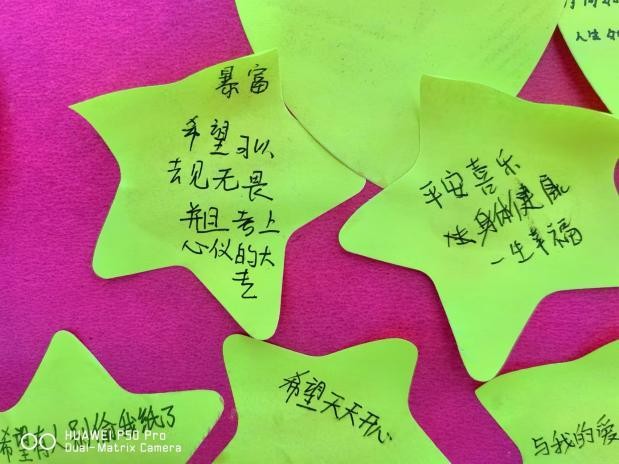 人生
暴富
希望可以
去见无畏
并且考上
心仪的大
平安喜乐
身体健康
一生幸福
希望天天开心
希望有人别给我
与我的爱
HUAWEI P50 Pro
Dual-Matrix Camera